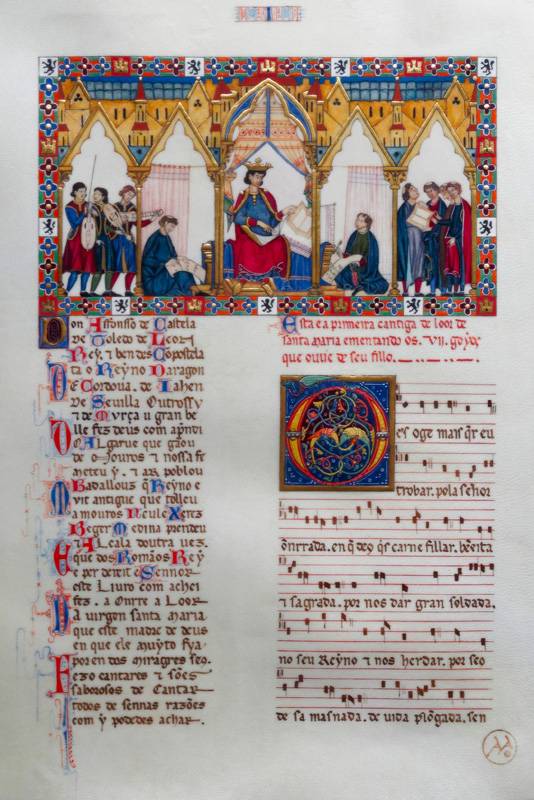 Don Affonsso de Castela
de Toledo de Leon
Rey. ⁊ ben des Conpostela
ta o Reyno daragon
De Cordova. de Iahen
De Sevilla Outrossy
⁊ de Murça u gran be
lle fez deus com apndi
Do Algarve que gãou
de mouros ⁊ nossa fe
meteu y. ⁊ ar poblou
Badallouz q̃ Reyno e
Mui antigue que tolleu
a mouros Neul e Xerez
Beger Medina prendeu
⁊ Alcala doutra vez.
E que dos Romãos Rey
e per dereit e Sennor
este Livro com achei
fez. a Onrre a Loor
Da virgen santa Maria
que este madre de deus
en que ele muyto fya.
por en dos miragres seo.
Fezo cantares ⁊ sões
saborosos de Cantar
todos de sennas razões
com y podedes achar.
Esta e a primeira cantiga de loor de
santa maria ementando os. VII. goyos
que ouve de seu fillo.
es oge mais q̃r eu
trobar. pola señor
õnrrada. en q̃ deq̃ q̃s carne fillar. bẽeita
⁊ sagrada. por nos dar gran soldada.
no seu Reyno ⁊ nos herdar. por seo
de sa masnada. de vida plõgada. sen